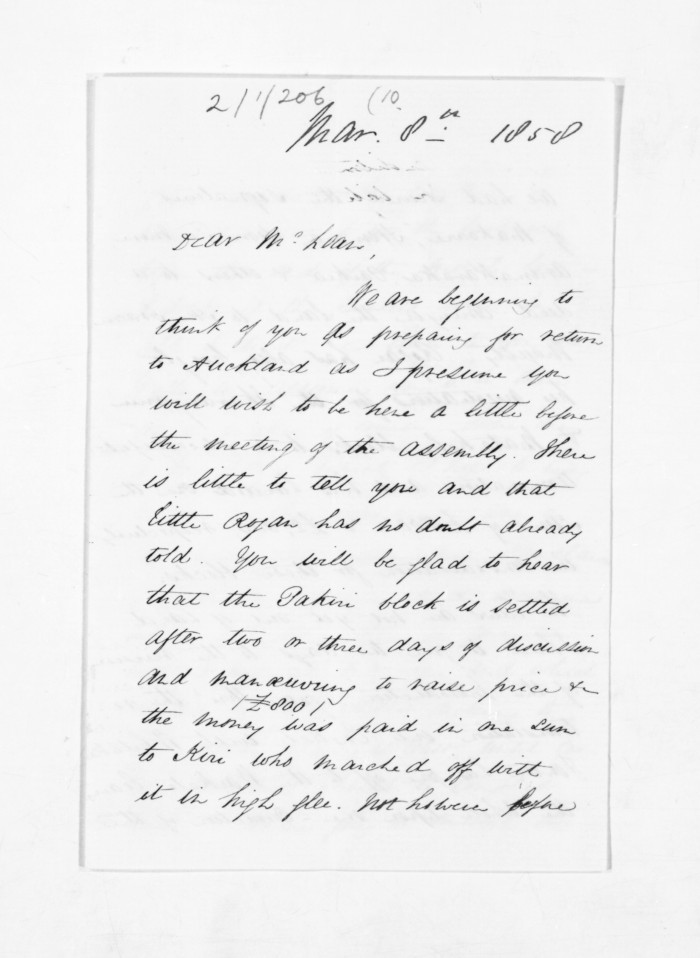 2/1/206 (10.
Mar. 8th 1858
Dear McLean,
We are beginning to
think of you as preparing for return
to Auckland as I presume you
will wish to be here a little before
the meeting of the assembly. There
is little to tell you and that
little Rogan has no doubt already
told. You will be glad to hear
that the Pakiri block is settled
after two or three days of discussion
and manœuvring to raise price &c
(£800)
the money was paid in one sum
to Kiri who marched off with
it in high glee. Not however before